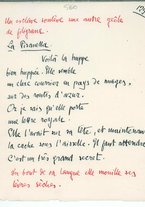 560
Un esclave soutient une autre grêle
de filigrane.
La Pisanella.
Voilà la huppe
bien huppée. Elle semble
un clerc coursier en pays de nuages,
sur des routes d'azur.
Or je sais qu'elle porte
une lettre royale.
Elle l'avait mis sa tête, et maintenant
la cache sous l'aisselle. Il faut attendre
C'est un très grand secret.
Un bout de sa langue elle mouille ses
lèvres sèches.